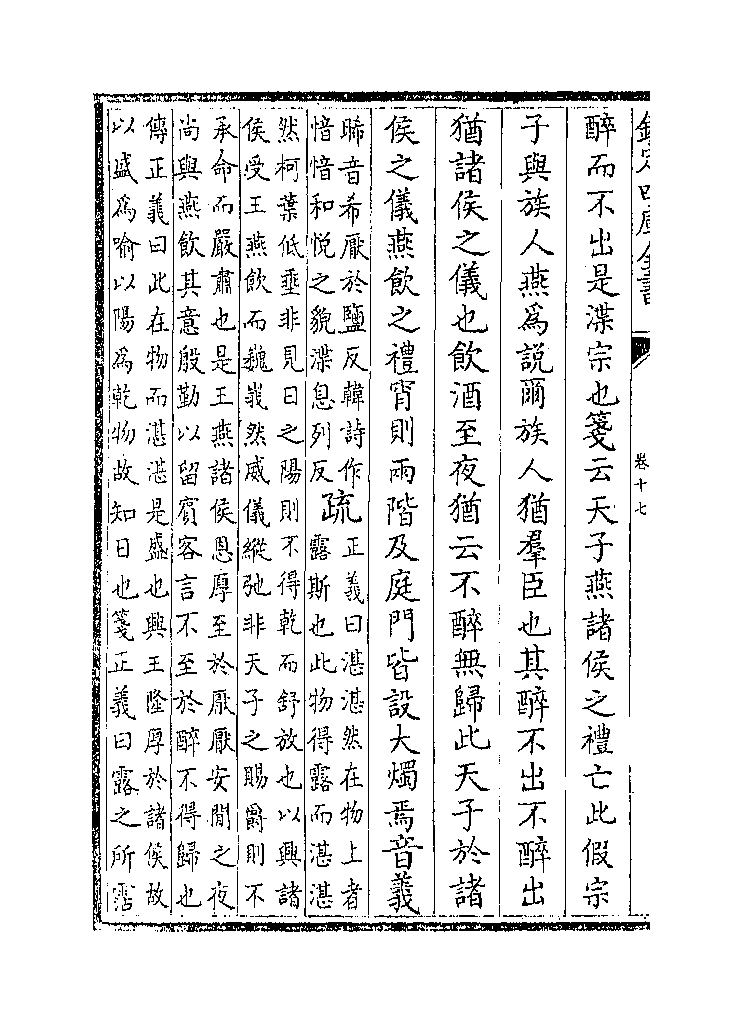 欽定四庫全書
卷十七
醉而不出是渫宗也箋云天子燕諸侯之禮亡此假宗
子與族人燕爲說爾族人猶羣臣也其醉不出不醉出
猶諸侯之儀也飲酒至夜猶云不醉無歸此天子於諸
侯之儀燕飲之禮宵則兩階及庭門皆設大燭焉音義
晞音希厭於鹽反韓詩作
愔愔和悅之貌渫息列反
疏
正義曰湛湛然在物上者
露斯也此物得露而湛湛
然柯葉低垂非見日之陽則不得乾而舒放也以興諸
侯受王燕飲而巍峩然威儀縱弛非天子之賜爵則不
承命而嚴肅也是王燕諸侯恩厚至於厭厭安閒之夜
尚與燕飲其意殷勤以留賓客言不至於醉不得歸也
傳正義曰此在物而湛湛是盛也興王隆厚於諸侯故
以盛爲喻以陽爲乾物故知日也箋正義曰露之所霑